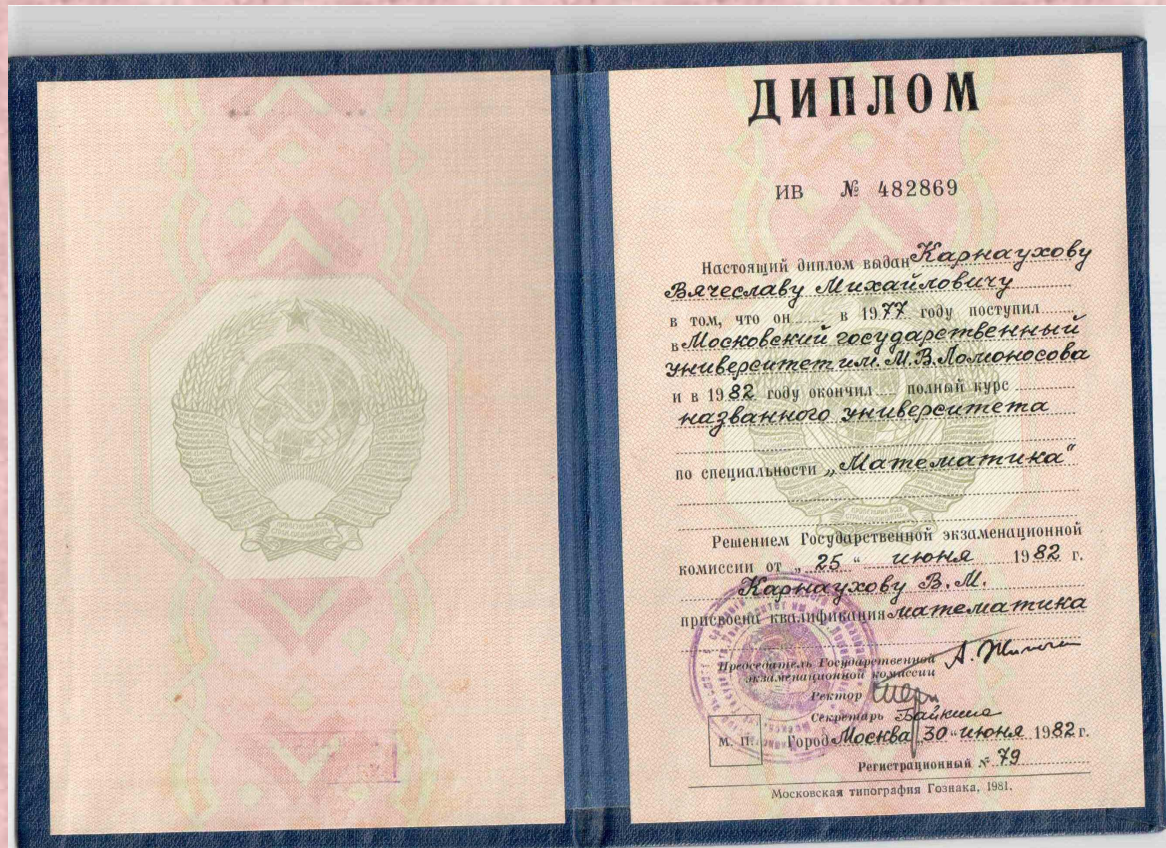 ДИПЛОМ
ИВ № 482869
Настоящий диплом выдан Карнаухову
Вячеславу Михайловичу
в том, что он в 1977 году поступил
в Московский государственный
университет им. М.В.Ломоносова
и в 1982 году окончил полный курс
названного университета
по специальности „Математика“
Решением Государственной экзаменационной
комиссии от „25“ июня 1982 г.
Карнаухову В.М.
присвоена квалификация математика
Председатель Государственной
экзаменационной комиссии
Ректор
Секретарь
М. П. Город Москва 30 „июня 1982 г.
Регистрационный № 79
Московская типография Гознака, 1981.